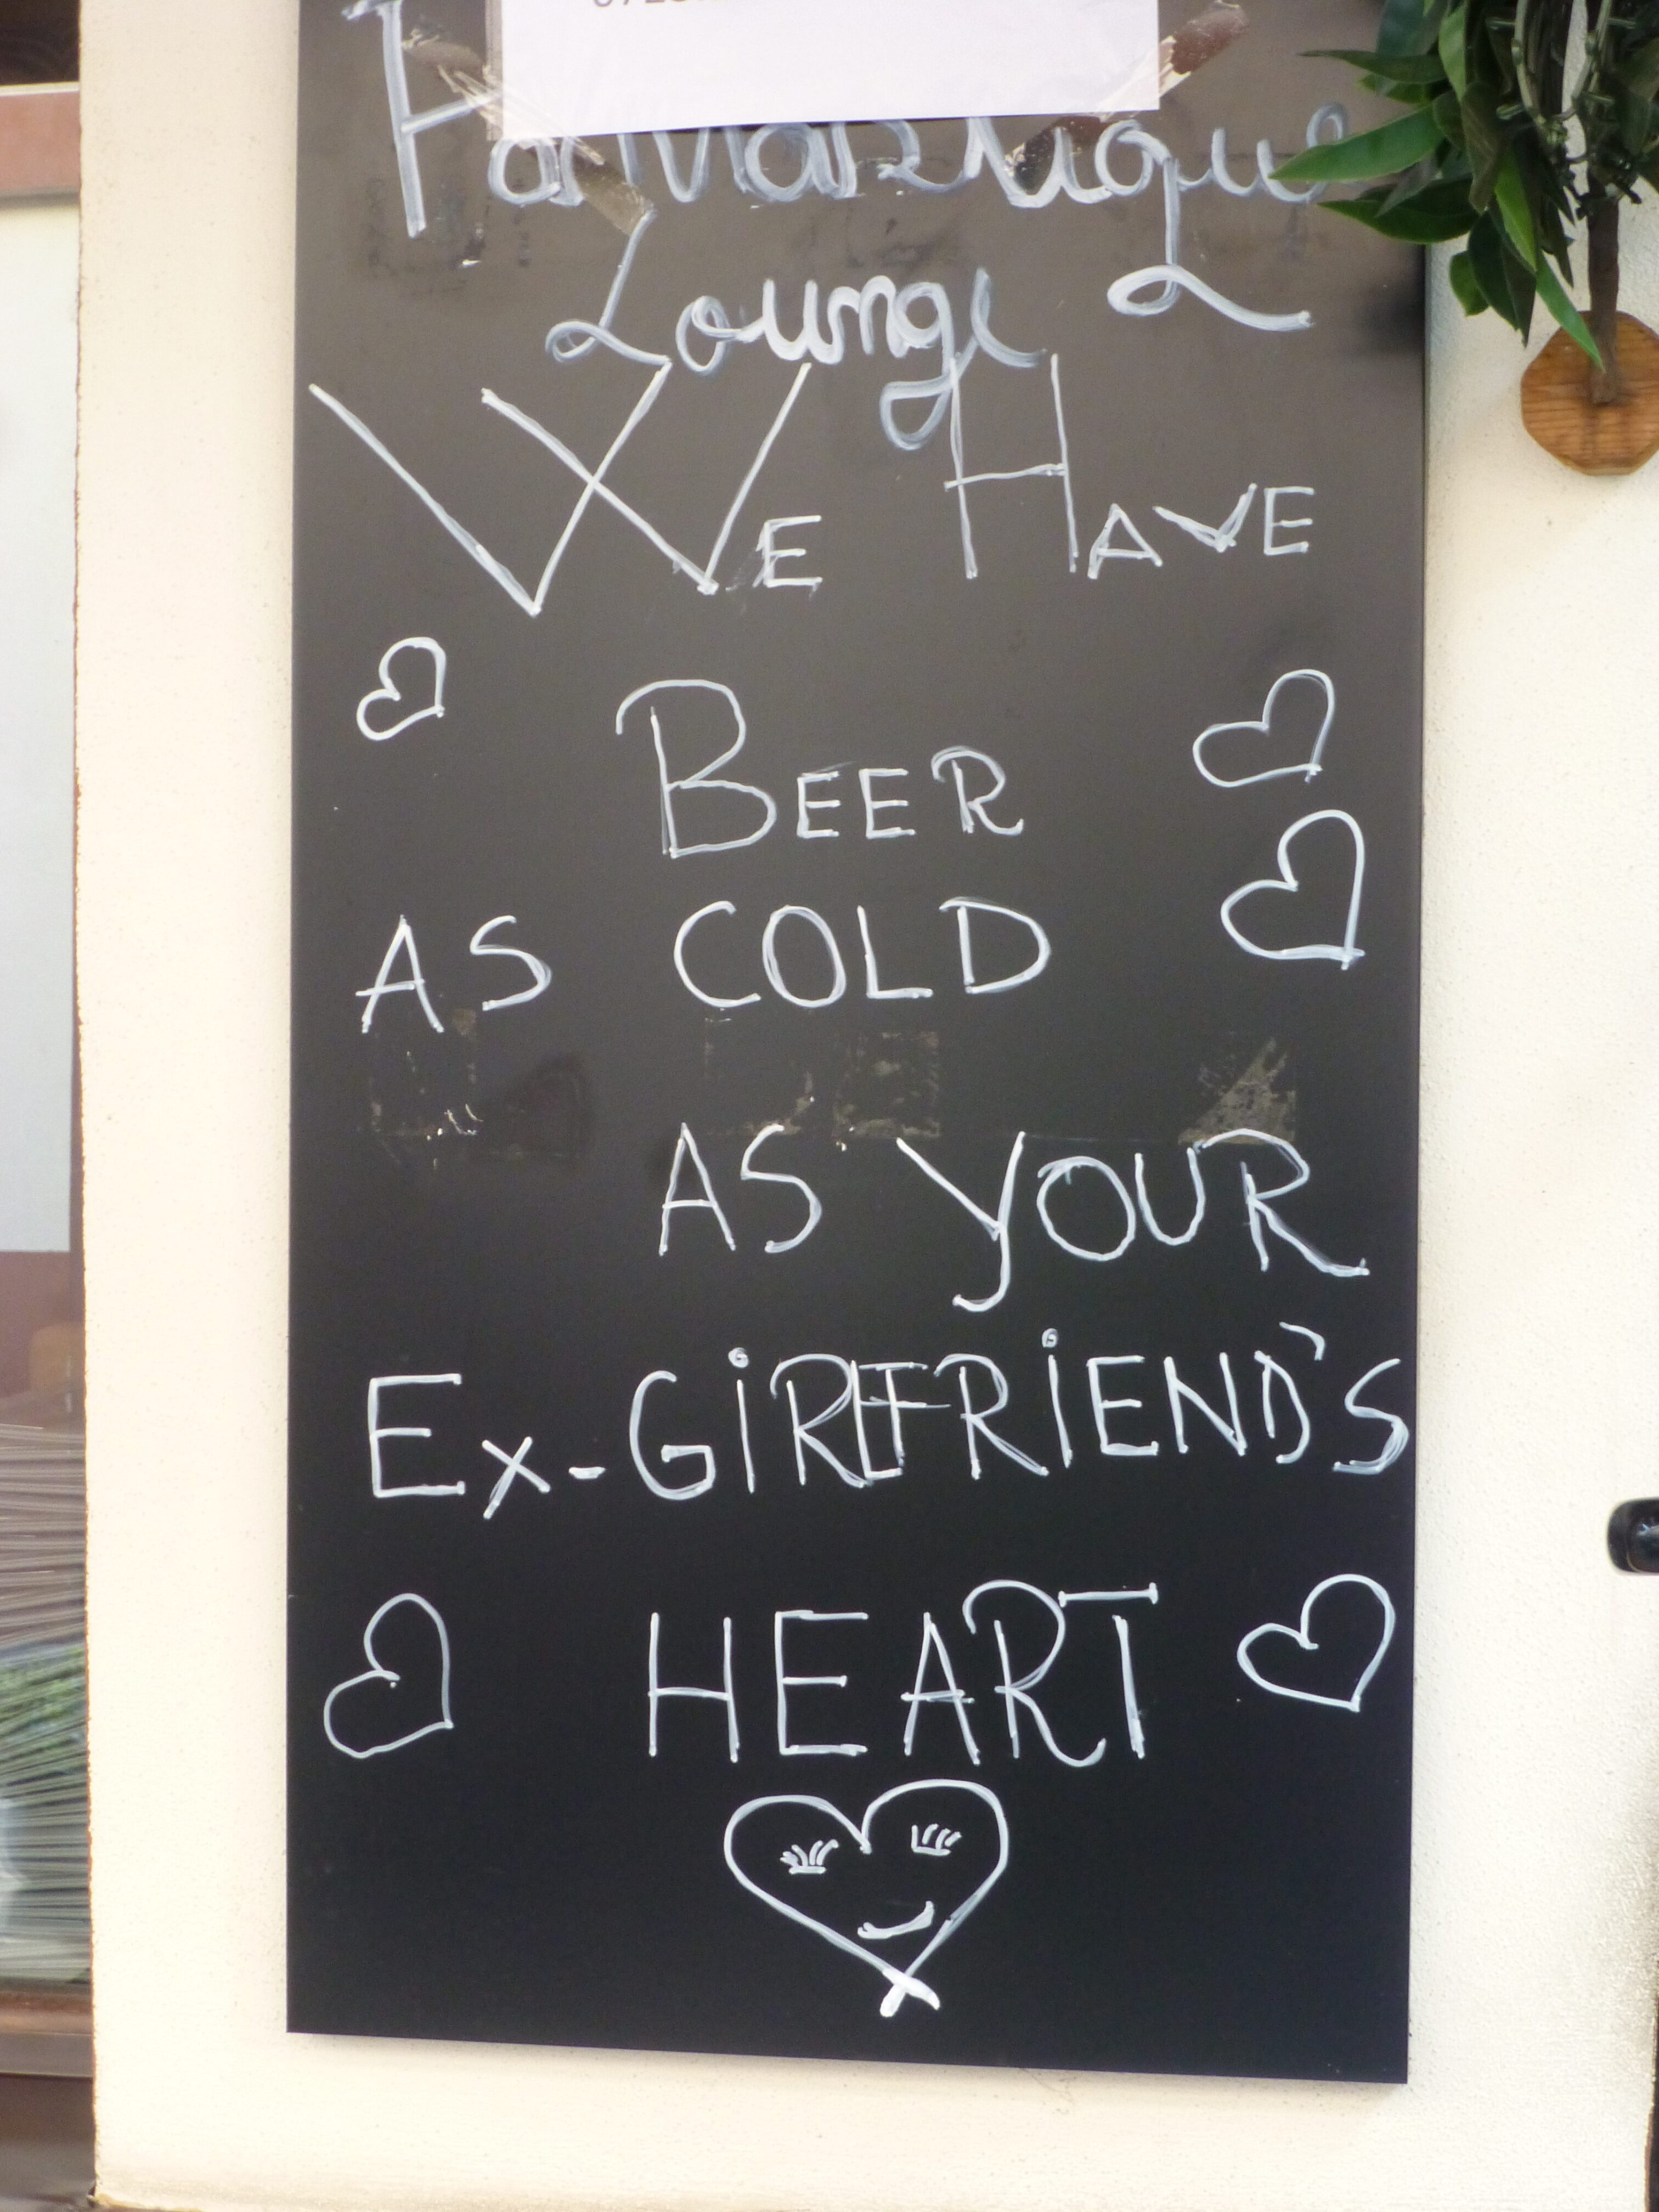 Fantastique
Lounge
WE HAVE
BEER
AS COLD
AS YOUR
EX-GIRLFRIEND'S
HEART